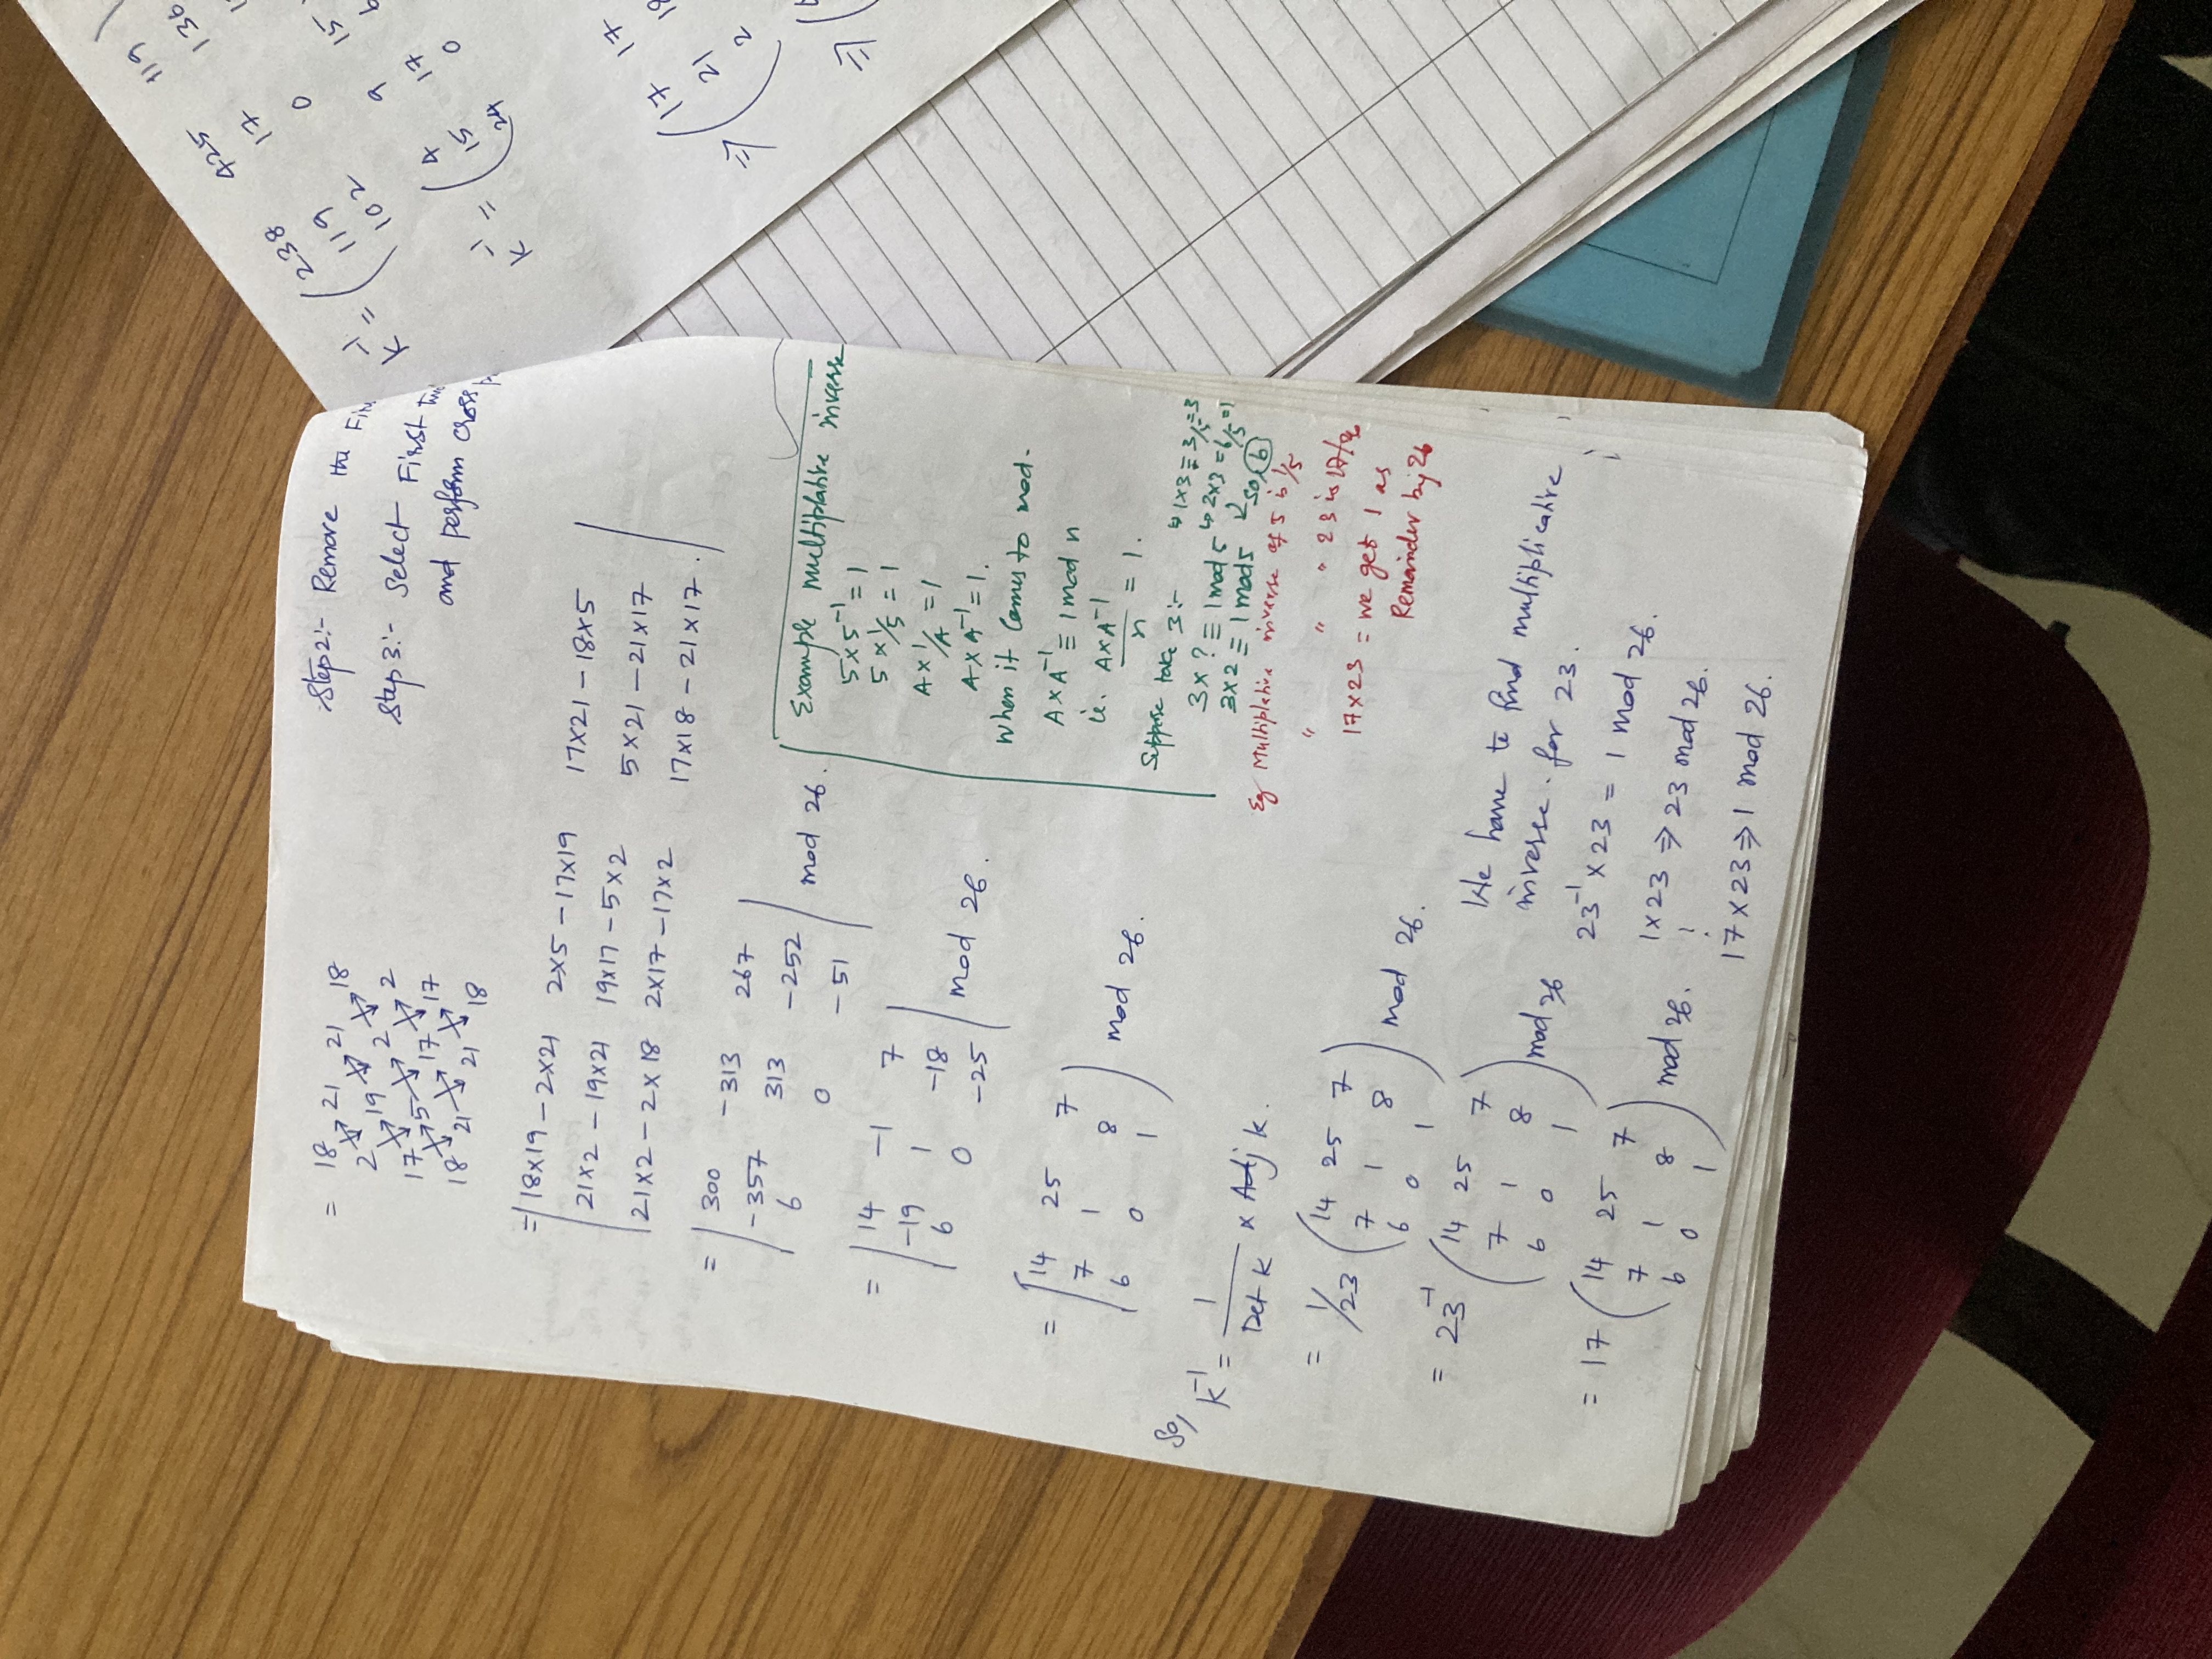 = 18 21 21 18
2 19 2 2
17 5 17 17
18 21 21 18
Step 2:- Remove the Fir
Step 3:- Select First two
and perform cross p
= | 18×19 − 2×21 2×5 − 17×19 17×21 − 18×5 |
21×2 − 19×21 19×17 − 5×2 5×21 − 21×17
21×2 − 2×18 2×17 − 17×2 17×18 − 21×17 .
= | 300 −313 267 |
−357 313 −252
6 0 −51 | mod 26.
= | 14 −1 7 |
−19 1 −18
6 0 −25 | mod 26.
= [ 14 25 7 )
7 1 8
6 0 1 ) mod 26.
So, K⁻¹ = 1/Det K × Adj K.
= 1/23 ( 14 25 7 )
7 1 8
6 0 1 ) mod 26.
= 23⁻¹ ( 14 25 7 )
7 1 8
6 0 1 ) mod 26
= 17 ( 14 25 7 )
7 1 8
6 0 1 ) mod 26.
Example multiplative inverse
5×5⁻¹ = 1
5 × 1/5 = 1
A × 1/A = 1
A × A⁻¹ = 1.
When it comes to mod.
A × A⁻¹ ≡ 1 mod n
ie. A×A⁻¹/n = 1.
Suppose take 3:- ↳ 1×3 ≡ 3/5 = 3
3 × ? ≡ 1 mod 5 ↳ 2×3 = 6/5 = 1
3×2 ≡ 1 mod 5 ↙ so, 6
Eg Multiplative inverse of 5 is 1/5
" " " 23 is 17/26
17×23 = we get 1 as
Remainder by 26
We have to find multiplicative
inverse. for 23.
23⁻¹ × 23 = 1 mod 26.
1×23 ⇒ 23 mod 26.
⋮
17×23 ⇒ 1 mod 26.
K⁻¹ = ( 238 425 119 )
119 17 136
102 0
K⁻¹ = ( 4 9 15
15 17 6
24 0
⇒ ( 17 17
21 18
2
⇒ (